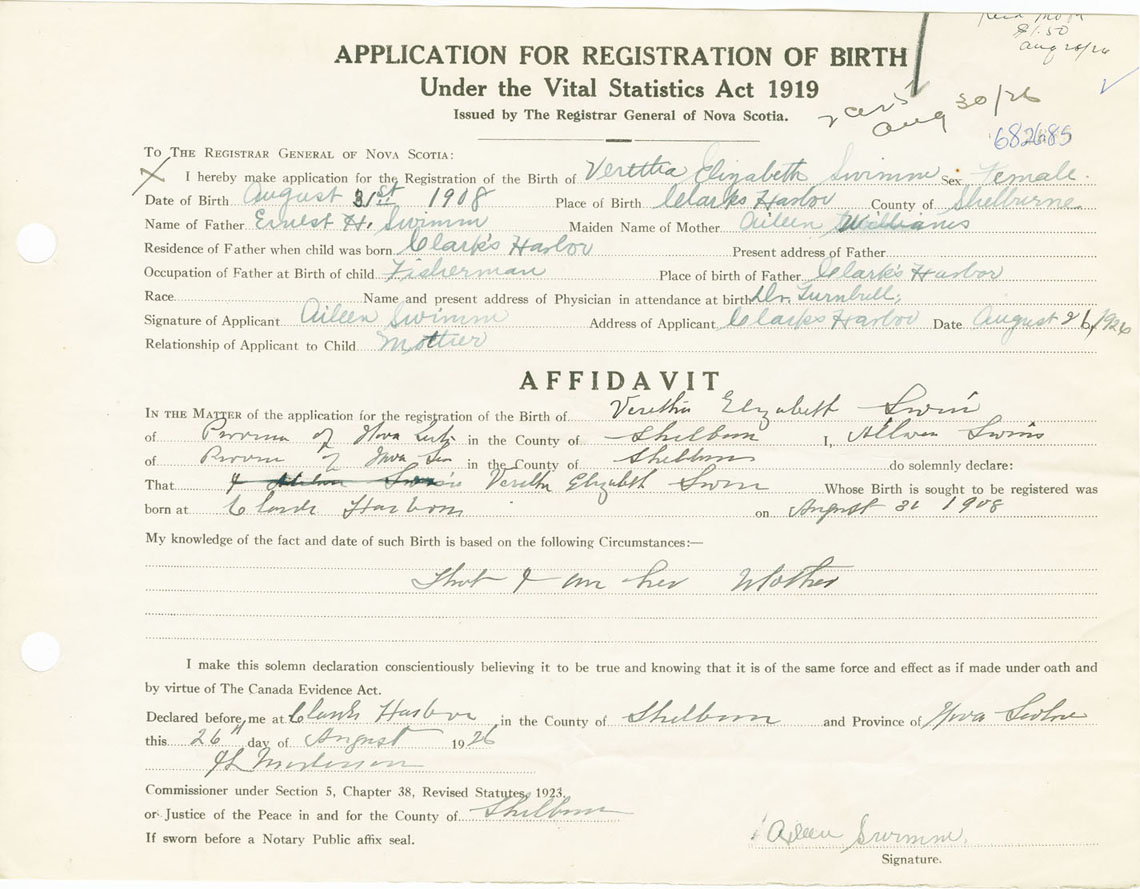 $1.50
Aug 26/26
APPLICATION FOR REGISTRATION OF BIRTH
Under the Vital Statistics Act 1919
Issued by The Registrar General of Nova Scotia.
Aug 30/26
682685
TO THE REGISTRAR GENERAL OF NOVA SCOTIA:
X I hereby make application for the Registration of the Birth of Veretha Elizabeth Swimm Sex Female.
Date of Birth August 31st 1908 Place of Birth Clarks Harbor County of Shelburne
Name of Father Ernest H. Swimm Maiden Name of Mother Aileen Williams
Residence of Father when child was born Clark's Harbor Present address of Father
Occupation of Father at Birth of child Fisherman Place of birth of Father Clark's Harbor
Race Name and present address of Physician in attendance at birth Dr. Turnbull,
Signature of Applicant Aileen Swimm Address of Applicant Clarks Harbor Date August 26, 1926
Relationship of Applicant to Child Mother
AFFIDAVIT
IN THE MATTER of the application for the registration of the Birth of Veretha Elizabeth Swim
of Province of Nova Scotia in the County of Shelburn I, Swim
of Province of Nova Sco in the County of Shelburn do solemnly declare:
That I Veretha Elizabeth Swim Whose Birth is sought to be registered was
born at Clarks Harbour on August 31 1908
My knowledge of the fact and date of such Birth is based on the following Circumstances:—
That I am her Mother
I make this solemn declaration conscientiously believing it to be true and knowing that it is of the same force and effect as if made under oath and
by virtue of The Canada Evidence Act.
Declared before me at Clarks Harbour in the County of Shelburn and Province of Nova Scotia
this 26th day of August 1926
Commissioner under Section 5, Chapter 38, Revised Statutes, 1923,
or Justice of the Peace in and for the County of Shelburn
If sworn before a Notary Public affix seal.
Aileen Swimm.
Signature.